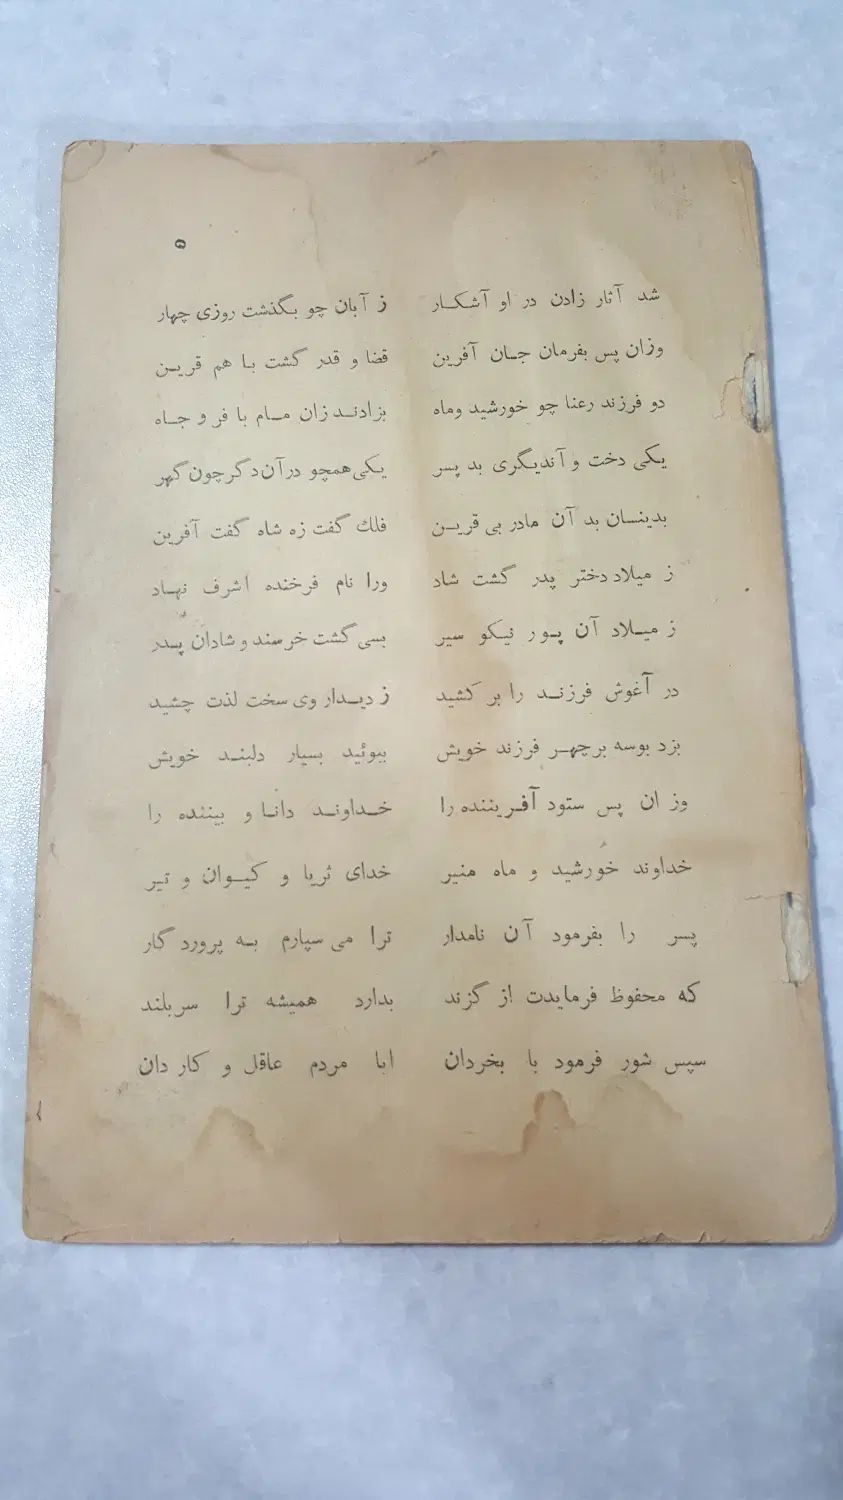 ۵
شد آثار زادن در او آشکار ز آبان چو بگذشت روزی چهار
وزان پس بفرمان جان آفرین قضا و قدر گشت با هم قرین
دو فرزند رعنا چو خورشید وماه بزادند زان مام با فر و جاه
یکی دخت و آندیگری بد پسر یکی همچو در آن دگر چون گهر
بدینسان بد آن مادر بی قرین فلك گفت زه شاه گفت آفرین
ز میلاد دختر پدر گشت شاد ورا نام فرخنده اشرف نهاد
ز میلاد آن پور نیکو سیر بسی گشت خرسند و شادان پدر
در آغوش فرزند را بر کشید ز دیدار وی سخت لذت چشید
بزد بوسه بر چهر فرزند خویش ببوئید بسیار دلبند خویش
وز ان پس ستود آفریننده را خداوند دانا و بیننده را
خداوند خورشید و ماه منیر خدای ثریا و کیوان و تیر
پسر را بفرمود آن نامدار ترا می سپارم به پرورد گار
که محفوظ فرمایدت از گزند بدارد همیشه ترا سربلند
سپس شور فرمود با بخردان ابا مردم عاقل و کار دان